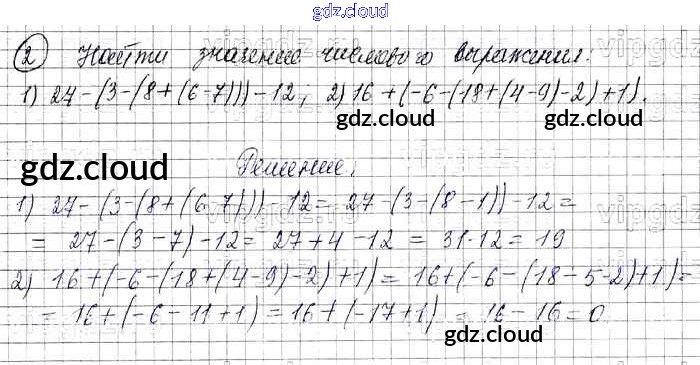 gdz.cloud
2 Найти значение числового выражения:
1) 27-(3-(8+(6-7)))-12; 2) 16+(-6-(18+(4-9)-2)+1).
gdz.cloud gdz.cloud
gdz.cloud Решение.
1) 27-(3-(8+(6-7)))-12= 27-(3-(8-1))-12=
= 27-(3-7)-12= 27+4-12= 31-12= 19
2) 16+(-6-(18+(4-9)-2)+1)= 16+(-6-(18-5-2)+1)=
= 16+(-6-11+1)=16+(-17+1) = 16-16=0
gdz.cloud gdz.cloud